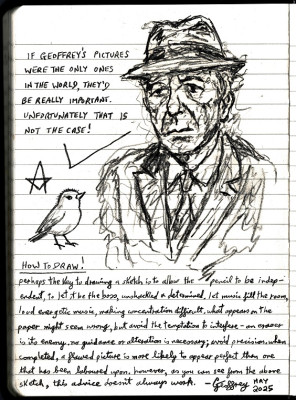 IF GEOFFREY'S PICTURES
WERE THE ONLY ONES
IN THE WORLD, THEY'D
BE REALLY IMPORTANT.
UNFORTUNATELY THAT IS
NOT THE CASE!
HOW TO DRAW!
perhaps the key to drawing a sketch is to allow the pencil to be indep-
endent, to let it be the boss, unshackled & determined. let music fill the room,
loud energetic music, making concentration difficult. what appears on the
paper might seem wrong, but avoid the temptation to interfere - an eraser
is its enemy. no guidance or alteration is necessary; avoid precision. when
completed, a flawed picture is more likely to appear perfect than one
that has been laboured upon. however, as you can see from the above
sketch, this advice doesn't always work. - Geoffrey MAY
2025